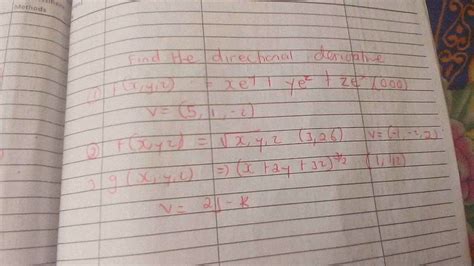 Methods
Find the directional derivative
① f(x,y,z) = xe^y + ye^z + ze^x (000)
V = (5, 1, -2)
② f(x,y,z) = √x,y,z (3,2,6) V=(-1,-2,2)
3 g(x,y,z) => (x+2y+3z)^3/2 (1,1,2)
V= 2j-k